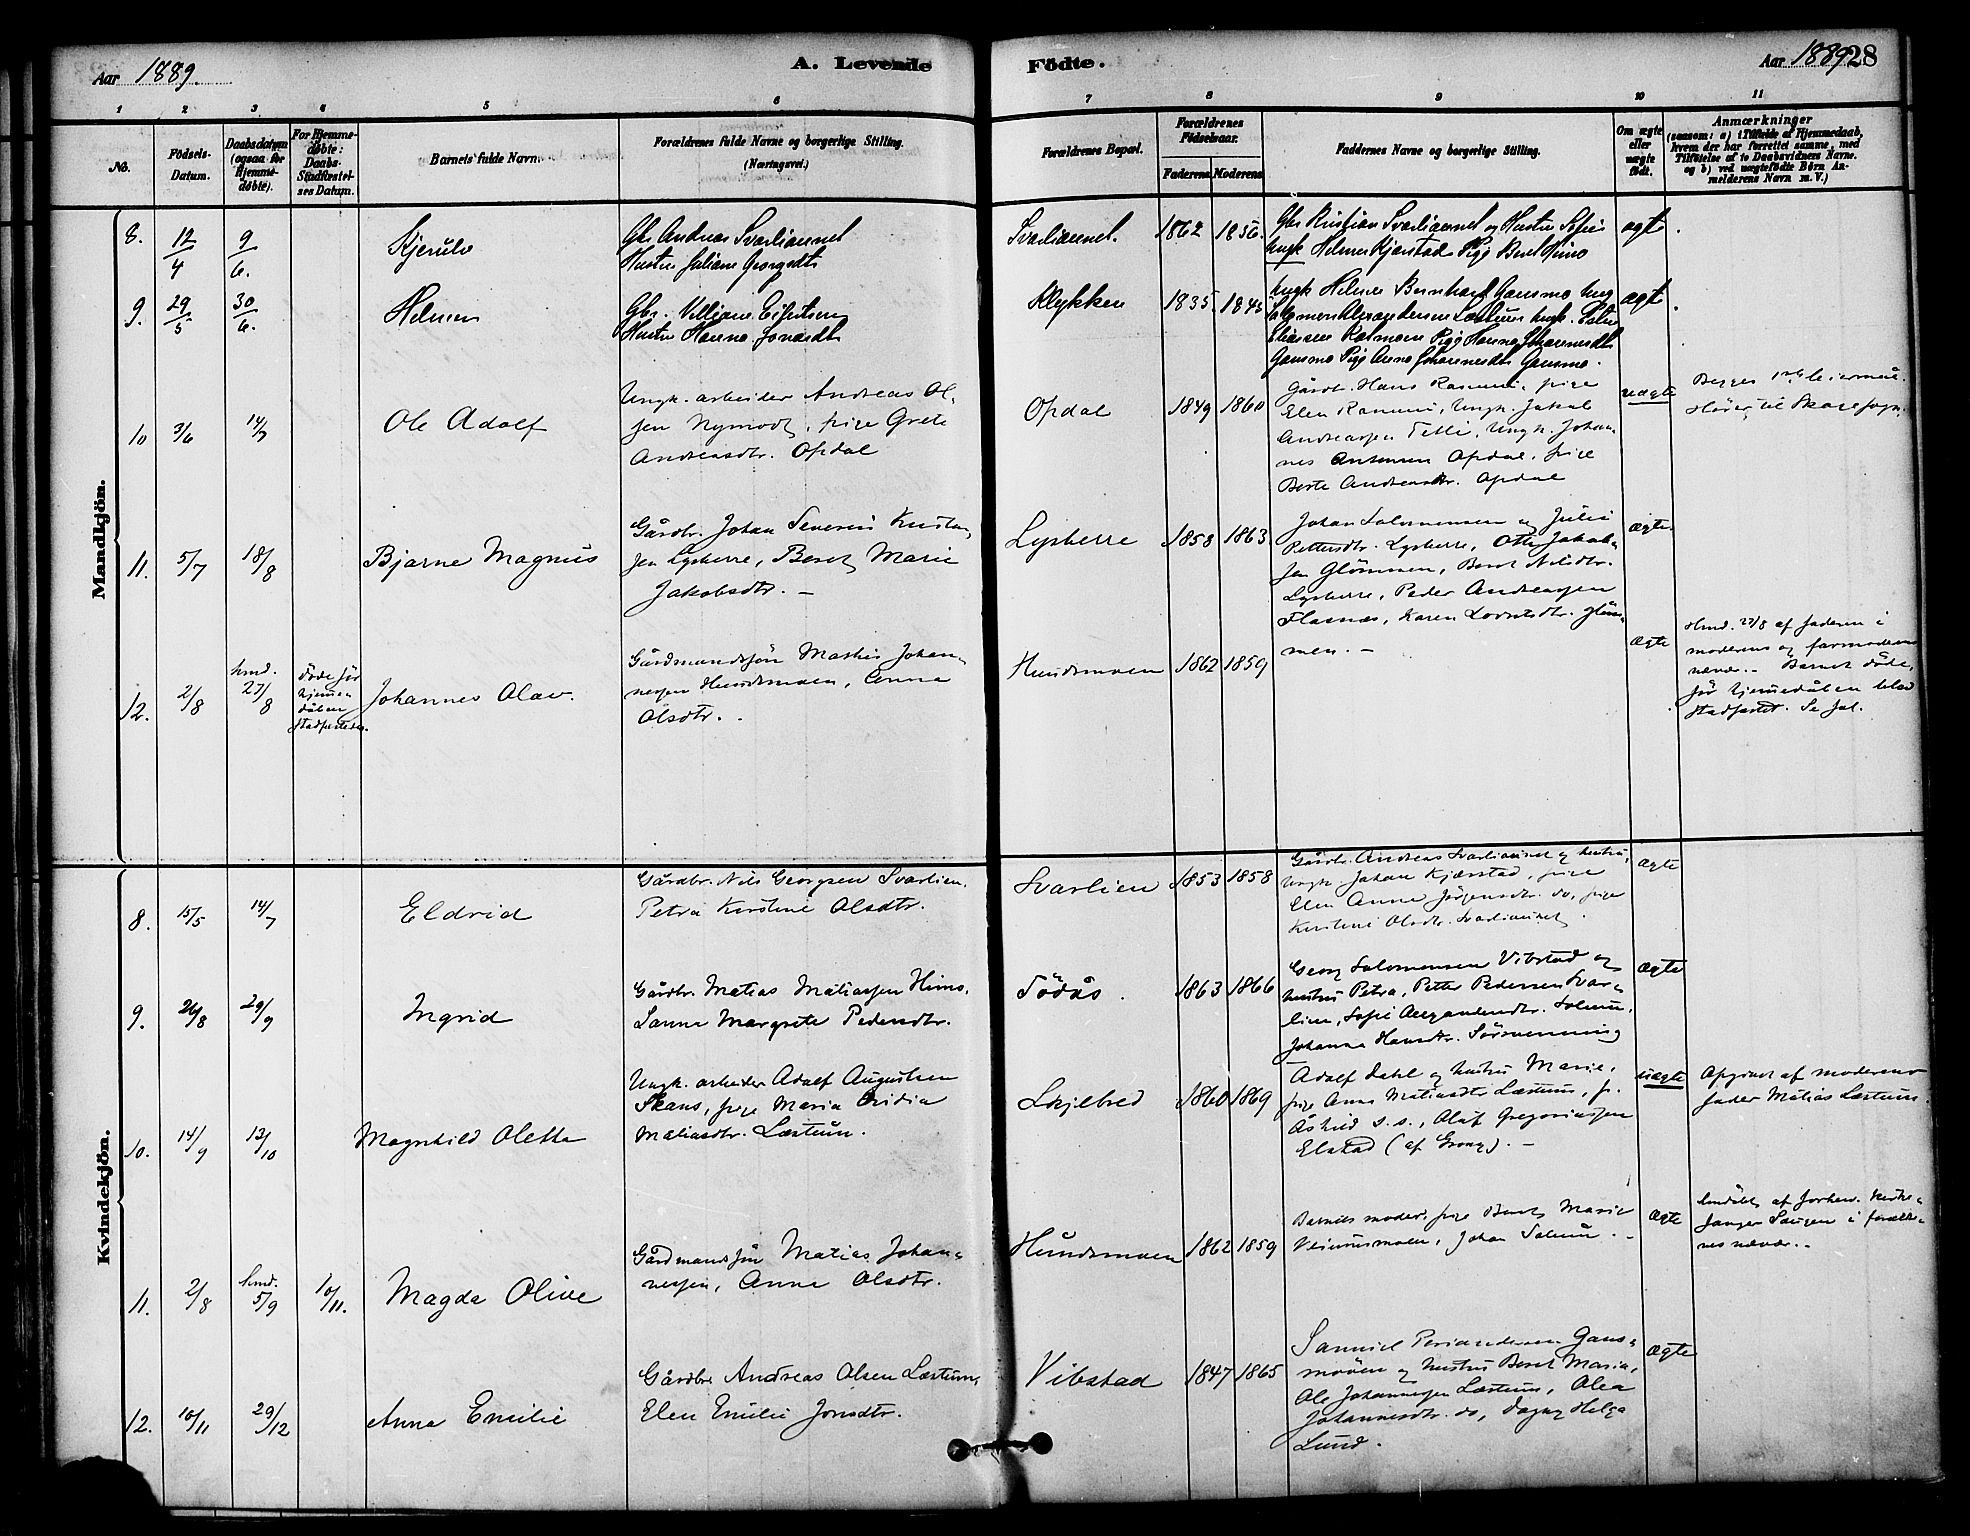 Aar 1889.
A. Levende
Födte.
Aar 1889
28
1 2 3 4 5 6 7 8 9 10 11
No.
Födsels-Datum.
Daabsdatum (ogsaa for Hjemme-døbte).
For Hjemme-døbte: Daabs-Stadfæstel-ses Datum.
Barnets fulde Navn.
Forældrenes fulde Navne og borgerlige Stilling.
(Næringsvei.)
Forældrenes Bopæl.
Forældrenes Födselsaar.
Faderens Moderens
Faddernes Navne og borgerlige Stilling.
Om ægte eller uægte födt.
Anmærkninger
(saasom: a) i Tilfælde af Hjemmedaab,
hvem der har forrettet samme, med
Tilföielse af to Daabsvidners Navne.
og b) ved uægtefödte Börn An-
melderens Navn m. V.)
Mandkjön.
8. 12/4 9/6. Kjerulv
Gbr Andreas Svarliaunet
Hustru Juliane Georgsdtr
Svarliaunet. 1862 1856.
Gbr Kristian Svarliaunet og Hustru Sofie
Ungk Helmer Kjærstad Pige Beret Himo
ægte.
9. 29/5 30/6. Helmer
Gbr. Villiam Eilertsen
Hustru Hanna Jonasdtr
Klykken 1835. 1845
Ungk Helmer Bernhard Gansmo Ung
Salomon Alexandersen Læstum Ungk.
Eliassen Pige Hanna Johannesdtr
Gansmo Pige Anna Johannesdtr Gansmo.
ægte.
10 3/6 14/7 Ole Adolf
Ungk. arbeider Andreas Ol-
sen Nymodt, pige Grete
Andreasdtr. Opdal
Opdal 1849 1860
Gårdbr. Hans Ranumi, pige
Elen Ranumi, Ungk. Jakob
Andreassen Tetli, Ungk. Johan-
nes Antonsen Opdal, pige
Berte Andreasdtr. Opdal
uægte
Begges 1ste leiermål.
Hører til Skage sogn.
11. 5/7 18/8 Bjarne Magnus
Gårdbr. Johan Severin Kristian-
sen Lysberre, Beret Marie
Jakobsdtr. –
Lysberre 1858 1863
Johan Salomonsen og Julie
Pettersdtr. Lysberre, Otto Jakob-
sen Glömmen, Beret Nilsdtr.
Lysberre, Peder Andreassen
Flasnæs, Karen Lorntsdtr. Glöm-
men. –
ægte.
12. 2/8 hmd. 27/8
Døde før
hjemme-
dåben
stadfæstedes.
Johannes Olav.
Gårdmandssön Mathis Johan-
nessen Hundsmoen, Anna
Olsdtr. –
Hundsmoen 1862 1859
ægte
Hmd. 27/8 af faderen i
moderens og farmoderens
nærvær. – Barnet døde,
før hjemmedåben blev
stadfæstet. Se
Kvindekjön.
8. 15/5 14/7 Eldrid
Gårdbr. Nils Georgsen Svarlien.
Petra Kirstine Olsdtr.
Svarlien 1853 1858
Gårdbr. Andreas Svarliaunet og hustru,
Ungk. Johan Kjærstad, pige
Elen Anna Jørgensdtr. do, pige
Kirstine Olsdtr. Svarliaunet.
ægte
9. 26/8 29/9 Ingrid
Gårdbr. Matias Matiassen Himo.
Lanna Margrete Pedersdtr.
Tödås. 1863 1866
Georg Salomonsen Vibstad og
hustru Petra, Petter Pedersen Svar-
lien, Sofie Solum,
Johanna Hansdtr. Sörvemning
ægte
10. 14/9 13/10 Magnhild Oletta
Ungk. arbeider Adolf Augustsen
Skans, pige Maria Oridia
Matiasdtr. Læstum.
Lysbred 1860 1869
Adolf Dahl og hustru Marie,
pige Anna Matiasdtr Læstum, p.
Åshild s. s., Olaf Gregoriassen
Elstad (af Grong). –
uægte
Opgivet af moderens
fader Matias Læstum.
11. 2/8 hmd. 5/9 10/11. Magda Olive
Gårdmandssön Matias Johan-
nessen, Anna Olsdtr.
Hundsmoen 1862 1859
Barnets moder, pige Beret Marie
Johan Solum. –
ægte
hmdöbt af forhenv. kirke-
sanger i foreldre-
nes nærvær. –
12. 10/11 29/12 Anna Emilie
Gårdbr. Andreas Olsen Læstum,
Elen Emilie Jonsdtr.
Vibstad 1847 1865
Samuel Gans-
moen og hustru Beret Maria,
Ole Johannessen Læstum, Olea
Johannesdtr. do, Dagny Helga
Lund.
ægte